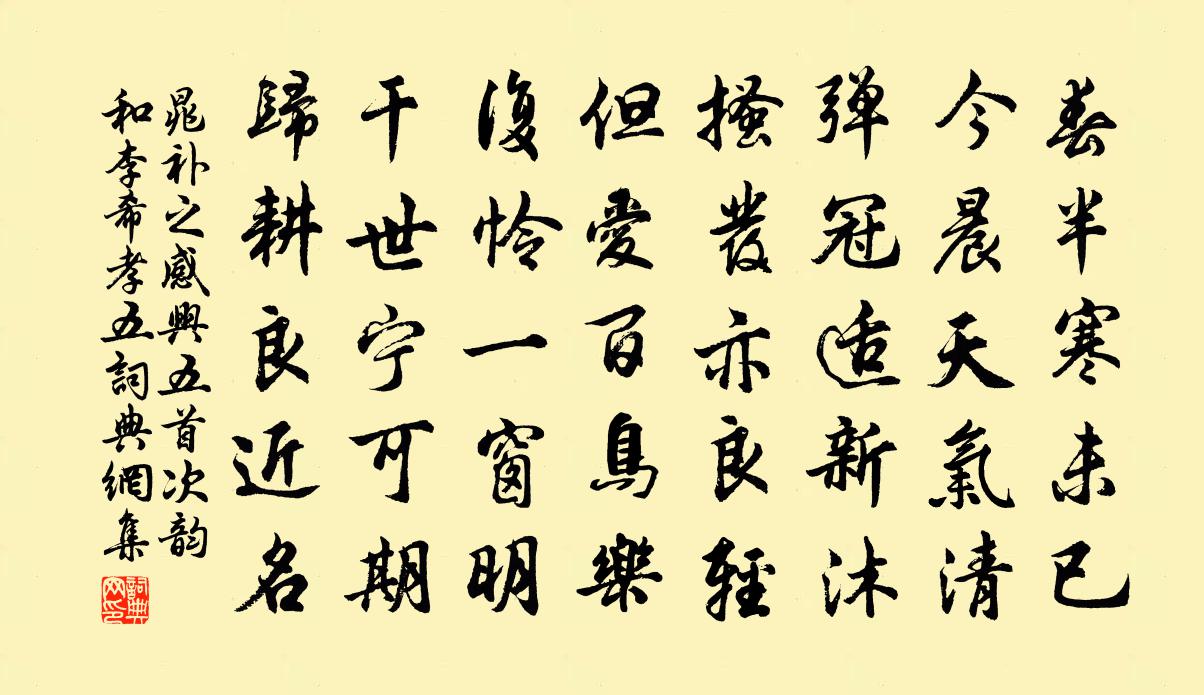 春半寒未已
今晨天氣清
彈冠适新沐
搔發亦良輕
但愛百鳥樂
復怜一窗明
干世宁可期
歸耕良近名
晁补之感興五首次韵
和李希孝五詞典網集
詞典网印